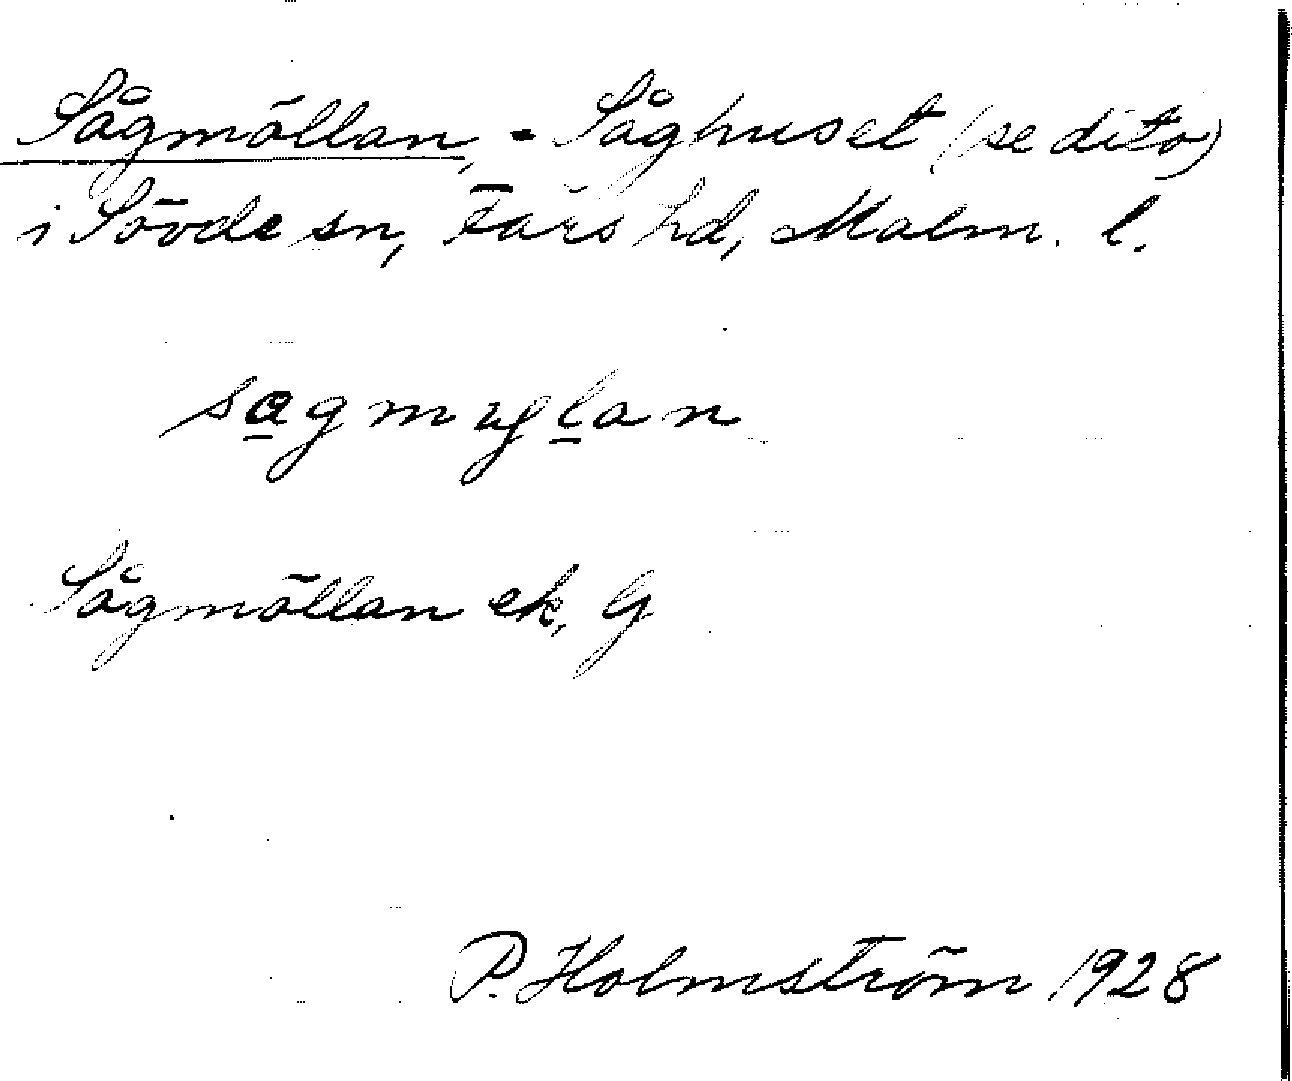 Sågmöllan, = Såghuset (se dito)
i Sövde sn, Färs hd, Malm. l.
Sågmöllan ek. G
P. Holmström 1928